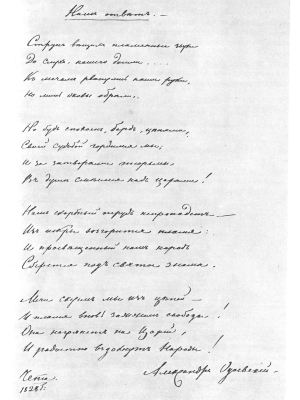 Нашъ отвѣтъ. —
Струнъ вѣщихъ пламенные звуки
До слуха нашего дошли....
Къ мечамъ рванулись наши руки,
Но лишь оковы обрѣли.
Но будь спокоенъ, бардъ, цѣпями,
Своей судьбой гордимся мы,
И за затворами тюрьмы
Въ душѣ смѣемся надъ царями!
Нашъ скорбный трудъ не пропадетъ —
Изъ искры возгорится пламя:
И просвѣщенный нашъ народъ
Сберется подъ святое знамя.
Мечи скуемъ мы изъ цѣпей —
И пламя вновь зажжемъ свободы!
Она нагрянетъ на Царей,
И радостно вздохнутъ Народы!
Александръ Одоевскій —
Чита.
1828 г.